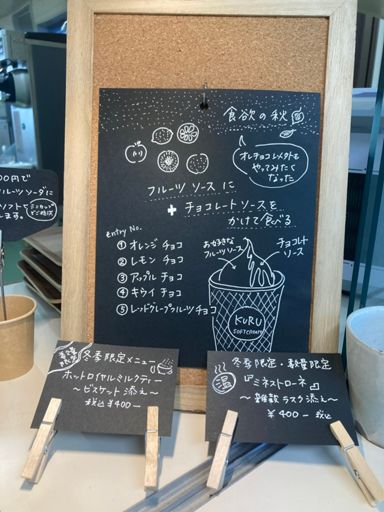 食欲の秋
オレチョコレメクトも
やってみたく
なった
フルーツ ソースに
+ チョコレートソースを
かけて食べる
entry No.
① オレンジ チョコ
② レモン チョコ
③ アップル チョコ
④ キウイ チョコ
⑤ レッドグレープフルーツチョコ
お好きな
フルーツソース
チョコレート
ソース
KURU
SOFTCREAM
00円で
フルーツソーダに
ソフト
ます。
冬季限定メニュー
ホットロイヤルミルクティー
〜ビスケット添え〜
税込¥400-
冬季限定・数量限定
温
『ミネストローネ』
〜雑穀ラスク添え〜
¥400- 税込